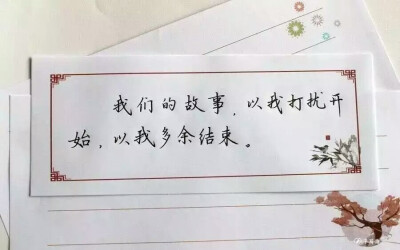 我们的故事，以我打扰开
始，以我多余结束。